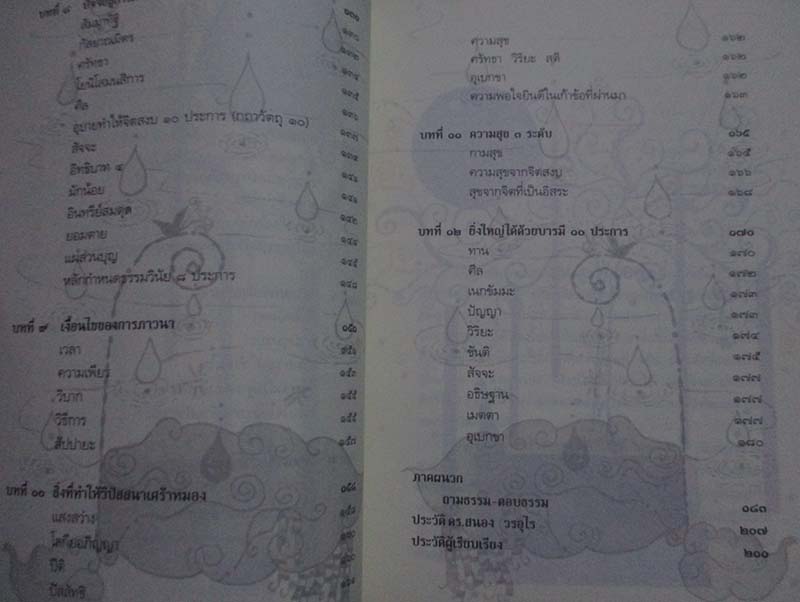 บทที่ ๘
สัมมาทิฐิ ๑๓๐
กัลยาณมิตร ๑๓๒
ศรัทธา
โยนิโสมนสิการ ๑๓๔
ศีล ๑๓๕
อุบายทำให้จิตสงบ ๑๐ ประการ (กถาวัตถุ ๑๐) ๑๓๗
สัจจะ
อิทธิบาท ๔
มักน้อย
อินทรีย์สมดุล ๑๔๒
ยอมตาย
แผ่ส่วนบุญ ๑๔๕
หลักกำหนดธรรมวินัย ๘ ประการ ๑๔๘
บทที่ ๙ เงื่อนไขของการภาวนา
เวลา
ความเพียร
วิบาก ๑๕๕
วิธีการ
สัปปายะ
บทที่ ๑๐ สิ่งที่ทำให้วิปัสสนาเศร้าหมอง
แสงสว่าง
โลกียอภิญญา
ปีติ
ปัสสัทธิ
ความสุข ๑๖๒
ศรัทธา วิริยะ สติ ๑๖๒
อุเบกขา ๑๖๒
ความพอใจยินดีในเก้าข้อที่ผ่านมา ๑๖๓
บทที่ ๑๑ ความสุข ๓ ระดับ ๑๖๕
กามสุข ๑๖๕
ความสุขจากจิตสงบ ๑๖๖
สุขจากจิตที่เป็นอิสระ ๑๖๘
บทที่ ๑๒ ยิ่งใหญ่ได้ด้วยบารมี ๑๐ ประการ ๑๗๐
ทาน ๑๗๐
ศีล ๑๗๒
เนกขัมมะ ๑๗๓
ปัญญา ๑๗๓
วิริยะ ๑๗๔
ขันติ ๑๗๕
สัจจะ ๑๗๗
อธิษฐาน ๑๗๗
เมตตา ๑๗๗
อุเบกขา ๑๘๐
ภาคผนวก
ถามธรรม-ตอบธรรม ๑๘๓
ประวัติ ดร.สนอง วรอุไร ๒๐๗
ประวัติผู้เรียบเรียง